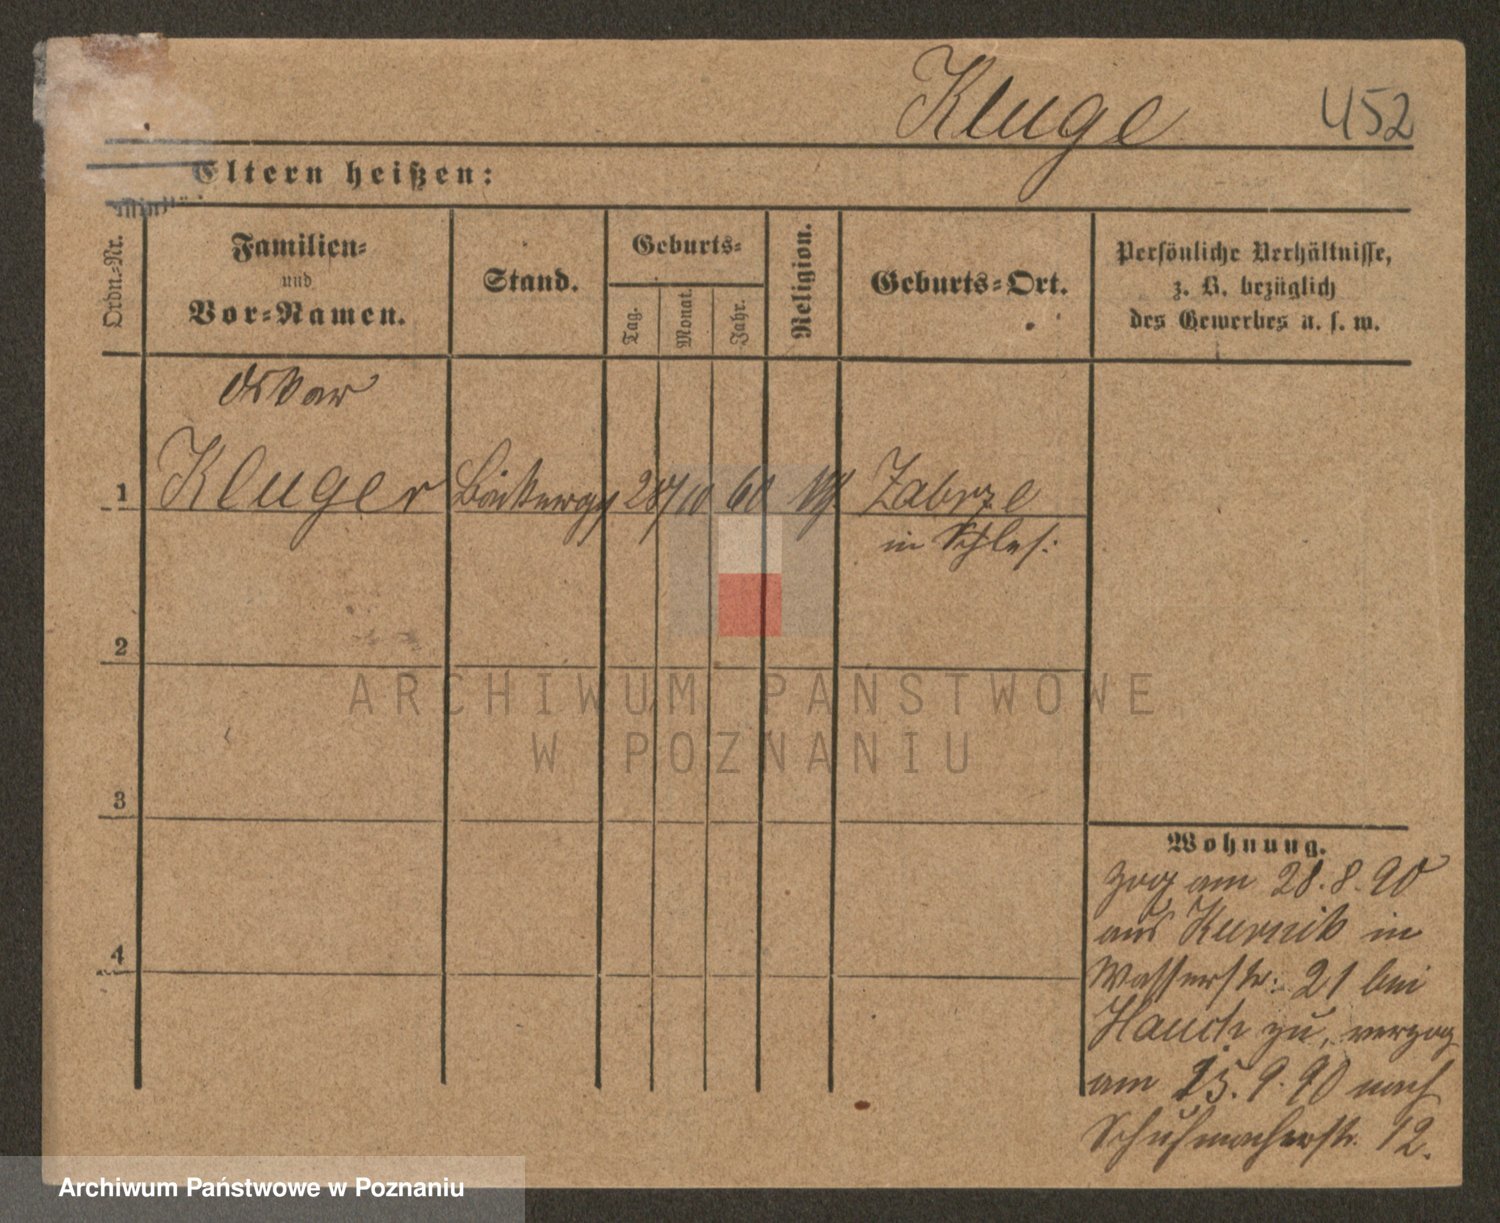 Kluge 452
Eltern heißen:
Ordn.-Nr.
Familien-
und
Vor-Namen.
Stand.
Geburts-
Tag.
Monat.
Jahr.
Religion.
Geburts-Ort.
Persönliche Verhältnisse,
z. B. bezüglich
des Gewerbes u. s. w.
Oskar
1 Kluger 28/10 60 Zabrze
in Schles:
2
ARCHIWUM PAŃSTWOWE
W POZNANIU
3
4
Wohnung.
zog am 28.8.90
aus Kurnik in
Wasserstr: 21 bei
Hauch zu, verzog
am 25.9.90 nach
Schuhmacherstr. 12.
Archiwum Państwowe w Poznaniu